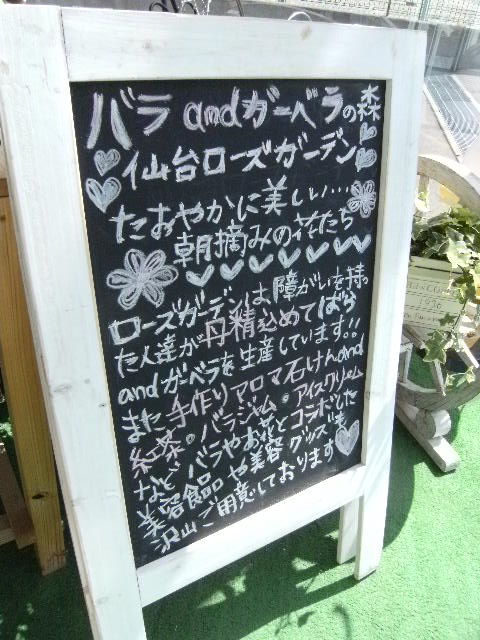 バラandガーベラの森
仙台ローズガーデン
たおやかに美しい…
朝摘みの花たち
ローズガーデンは、障がいを持っ
た人達が丹精込めてばら
andガーベラを生産しています!!
また手作りアロマ石けんand
紅茶。バラジャム。アイスクリーム
など バラやお花とコラボした
美容食品や美容グッズを
沢山ご用意しております
1936